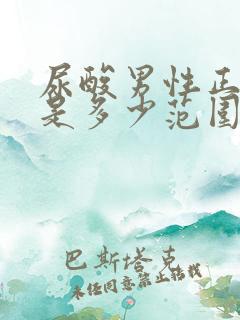 尿酸男性正
是多少范围
巴斯塔克
未经同意禁止转载